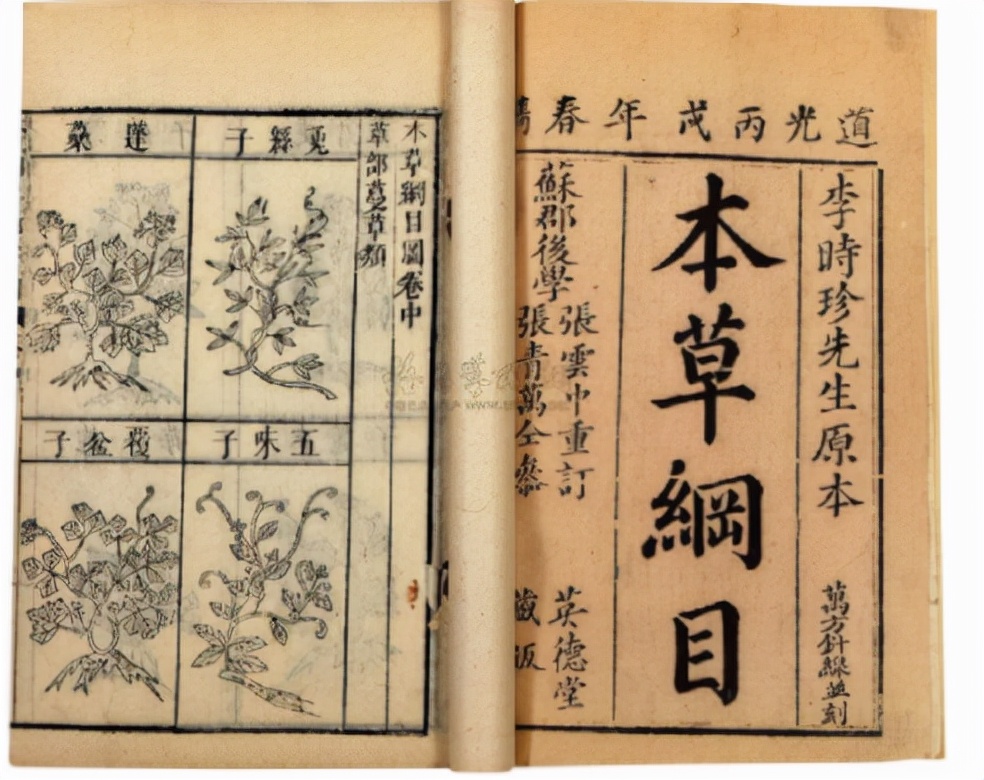 道光丙戌年春
李時珍先生原本
萬方針線並刻
本草綱目
蘇郡後學
張雲中重訂
張青萬仝參
英德堂
藏板
本草綱目圖卷中
草部蔓草類
菟絲子
蓬蘽
五味子
覆盆子